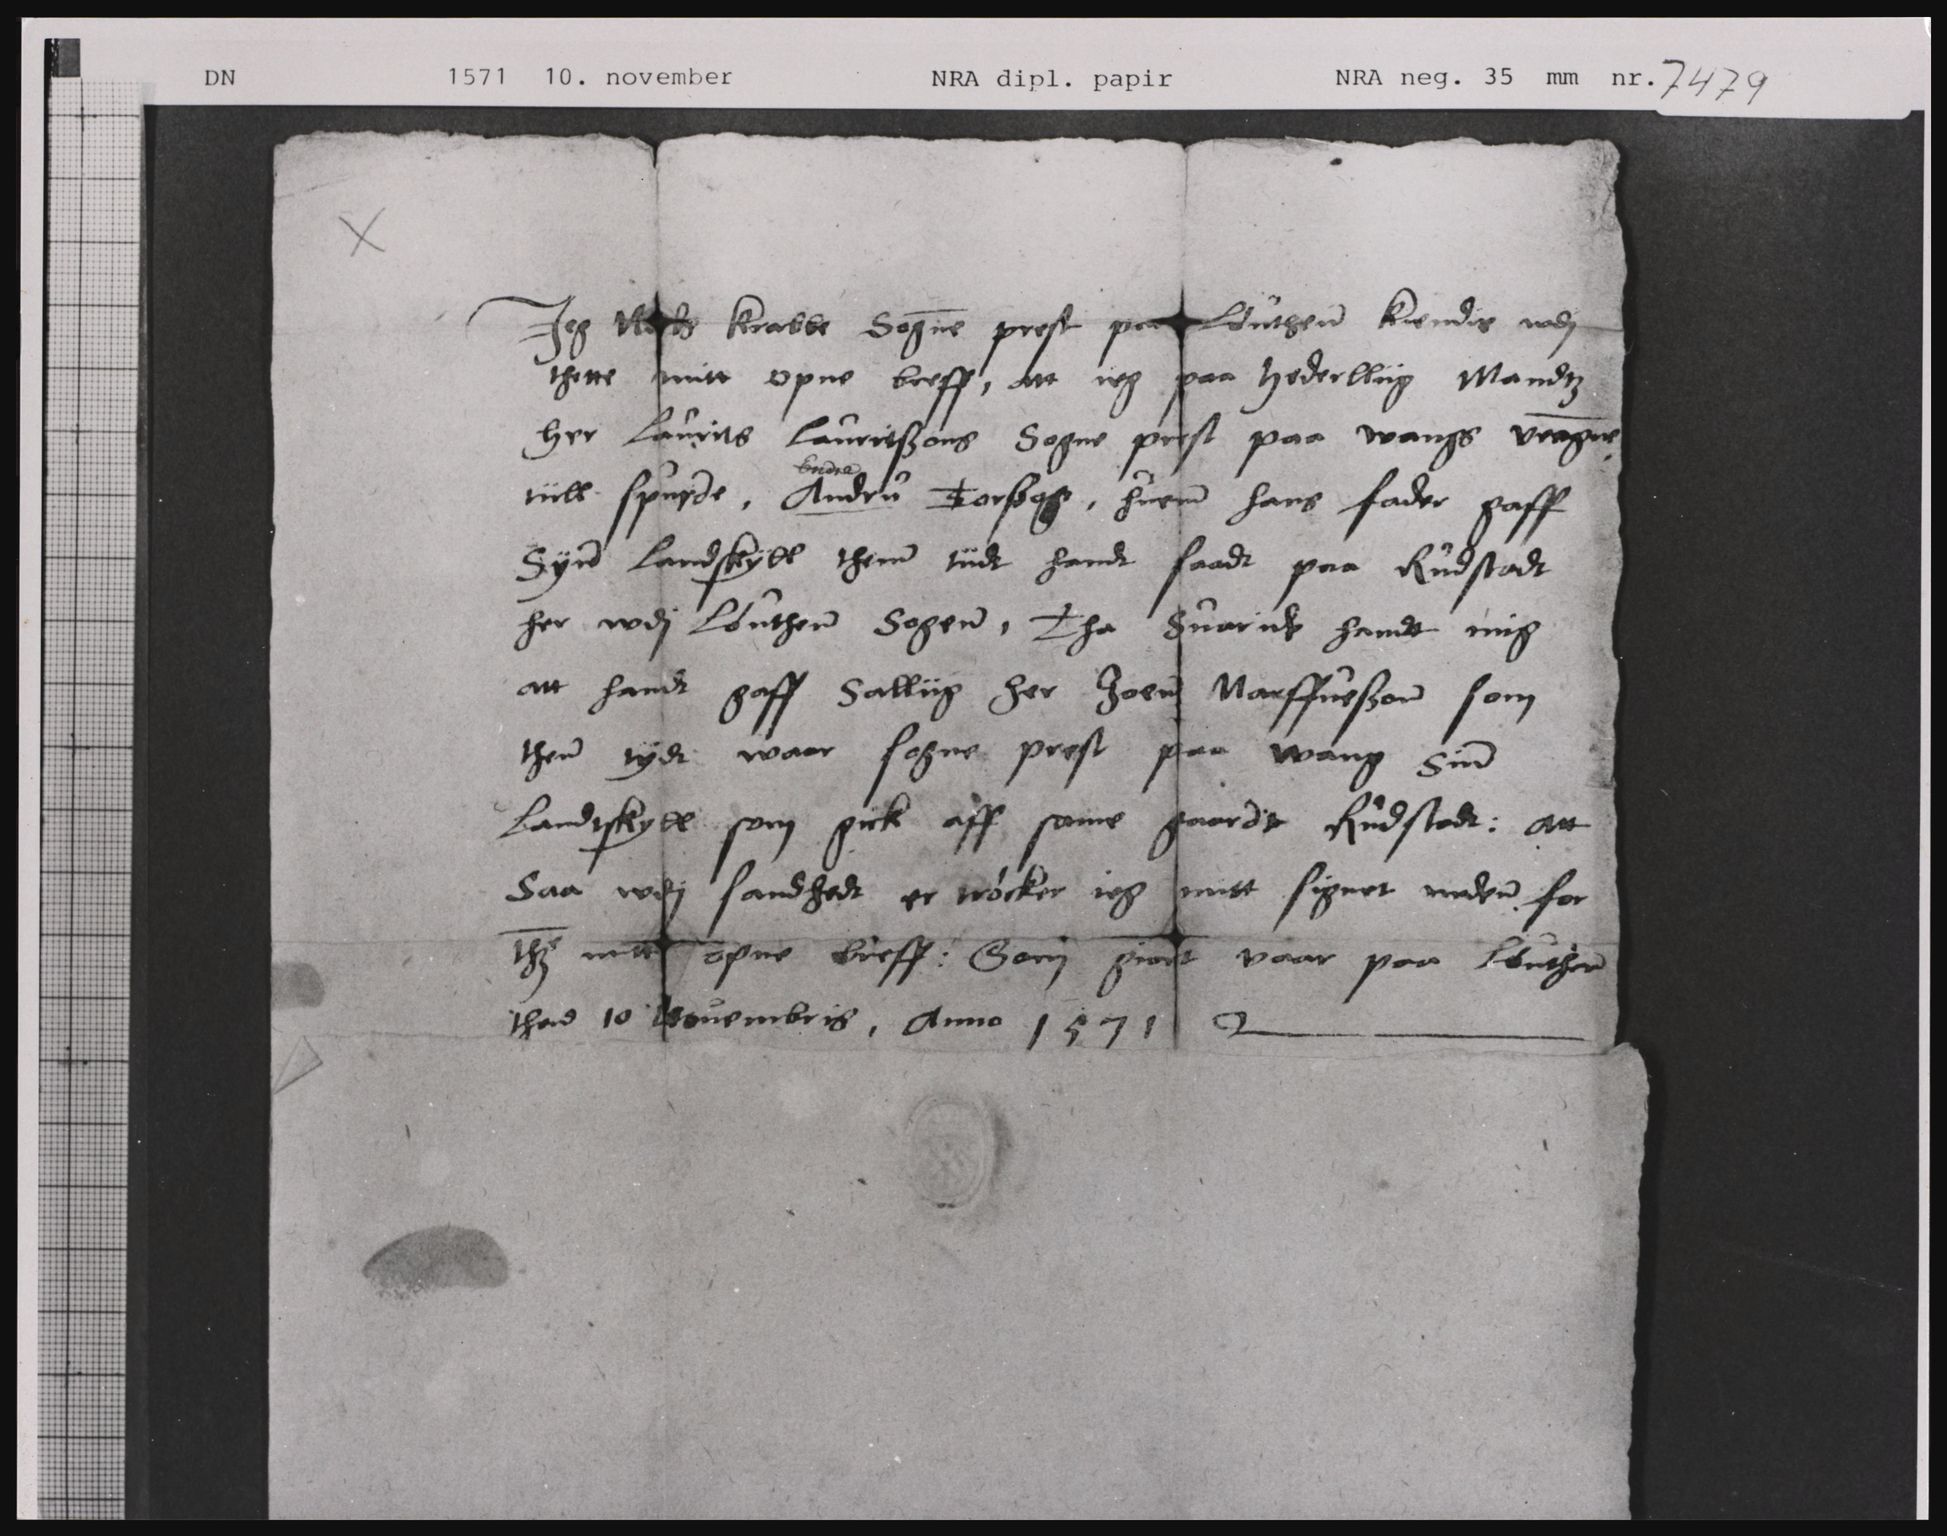 DN 1571 10. november NRA dipl. papir NRA neg. 35 mm nr. 7479
Jeg Krabbe Sogne prest paa Løuthenn kiendis wdj
thette mitt opne breff, att ieg paa hederlliig Mandtz
her Laurits Lauritßøns Sogne prest paa wangs vegne
tiill spurde, Andru Torßøg, huem hans fader gaff
endra
Synn landskyld thenn tiidt handt saadt paa Rudstadt
her wdj Løuthenn Sogenn, Tha Suaride handt mig
att handt gaff Salliig her Joenn Narffueßønn som
thenn tydt waar sogne prest paa wang Sinn
Landtskyld som gick aff same gaardt Rudstadt: att
Saa wdj sandhedt er trøcker ieg mitt signet nedenn for
mitt opne breff: Som giort vaar paa Løuthenn
thend 10 Nouembris, Anno 1571